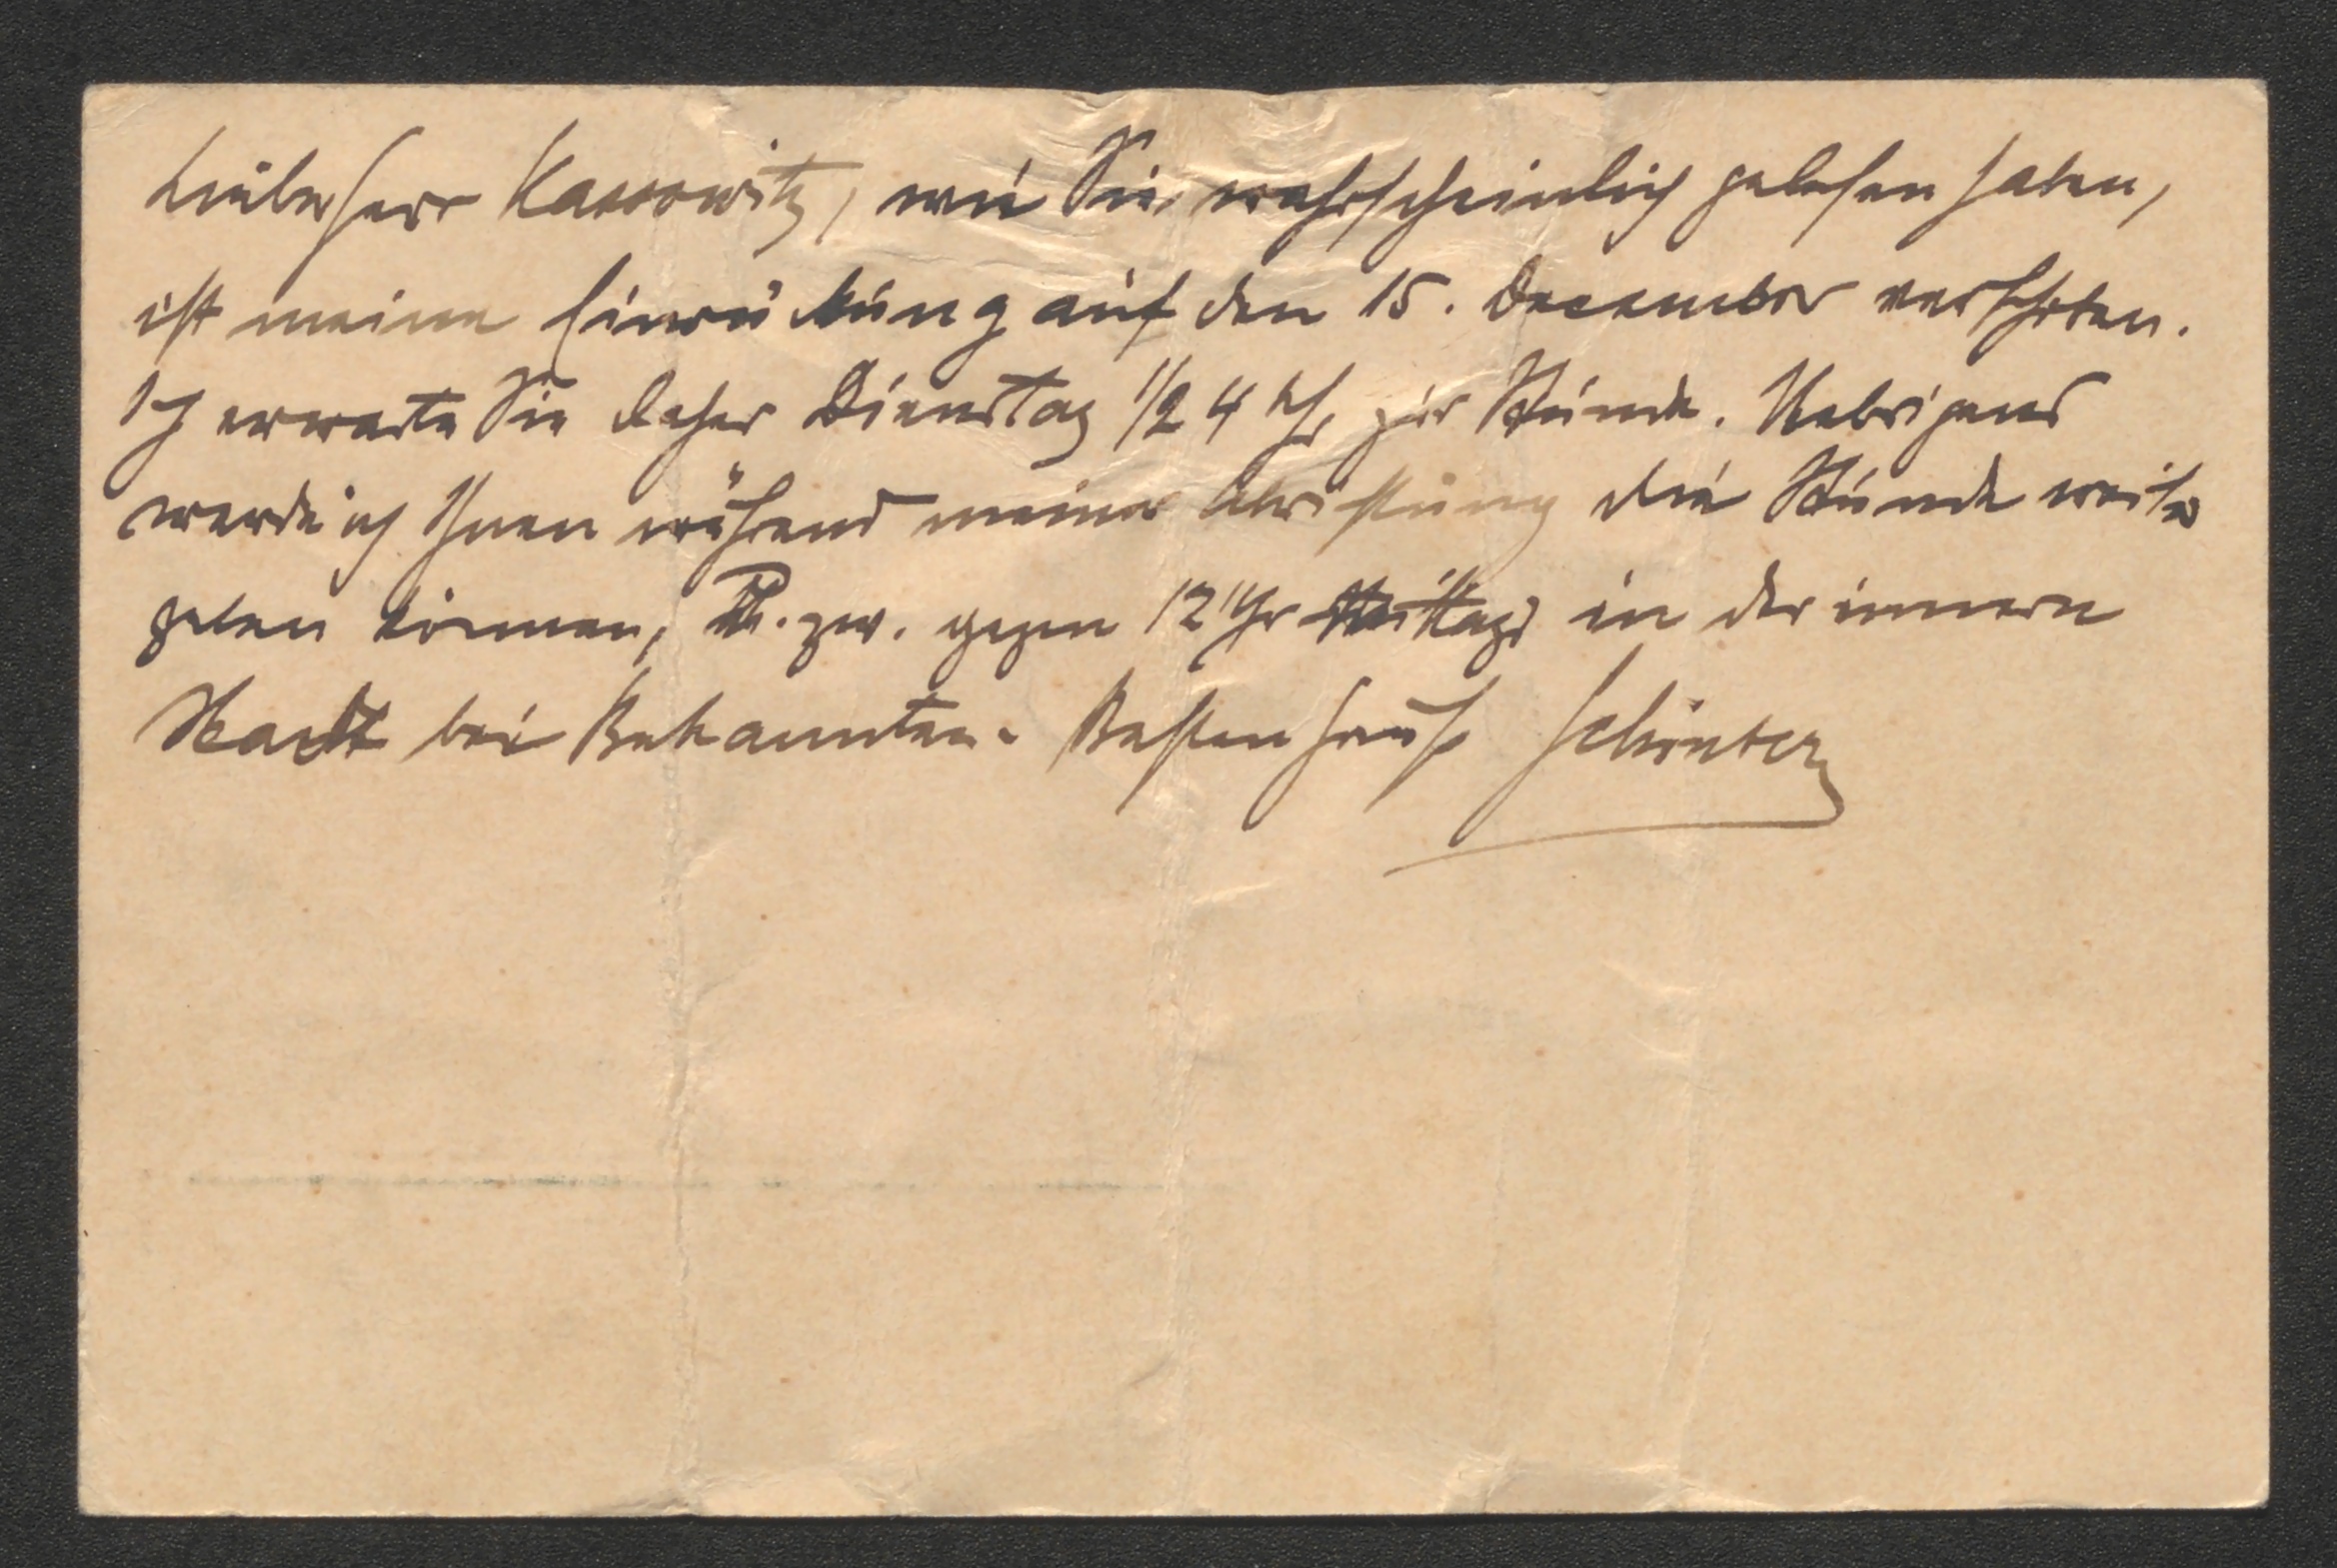 Lieber Herr Kassowitz, wie Sie wahrscheinlich gelesen haben,
ist meine Einrückung auf den 15. December verschoben.
Ich erwarte Sie daher Dienstag 1/2 4 Uhr zur Stunde. Uebrigens
werde ich Ihnen während meiner die Stunde weiter
geben können, u. zw. gegen 12 Uhr Mittags in der innern
Stadt bei Bekannten. Besten Gruß